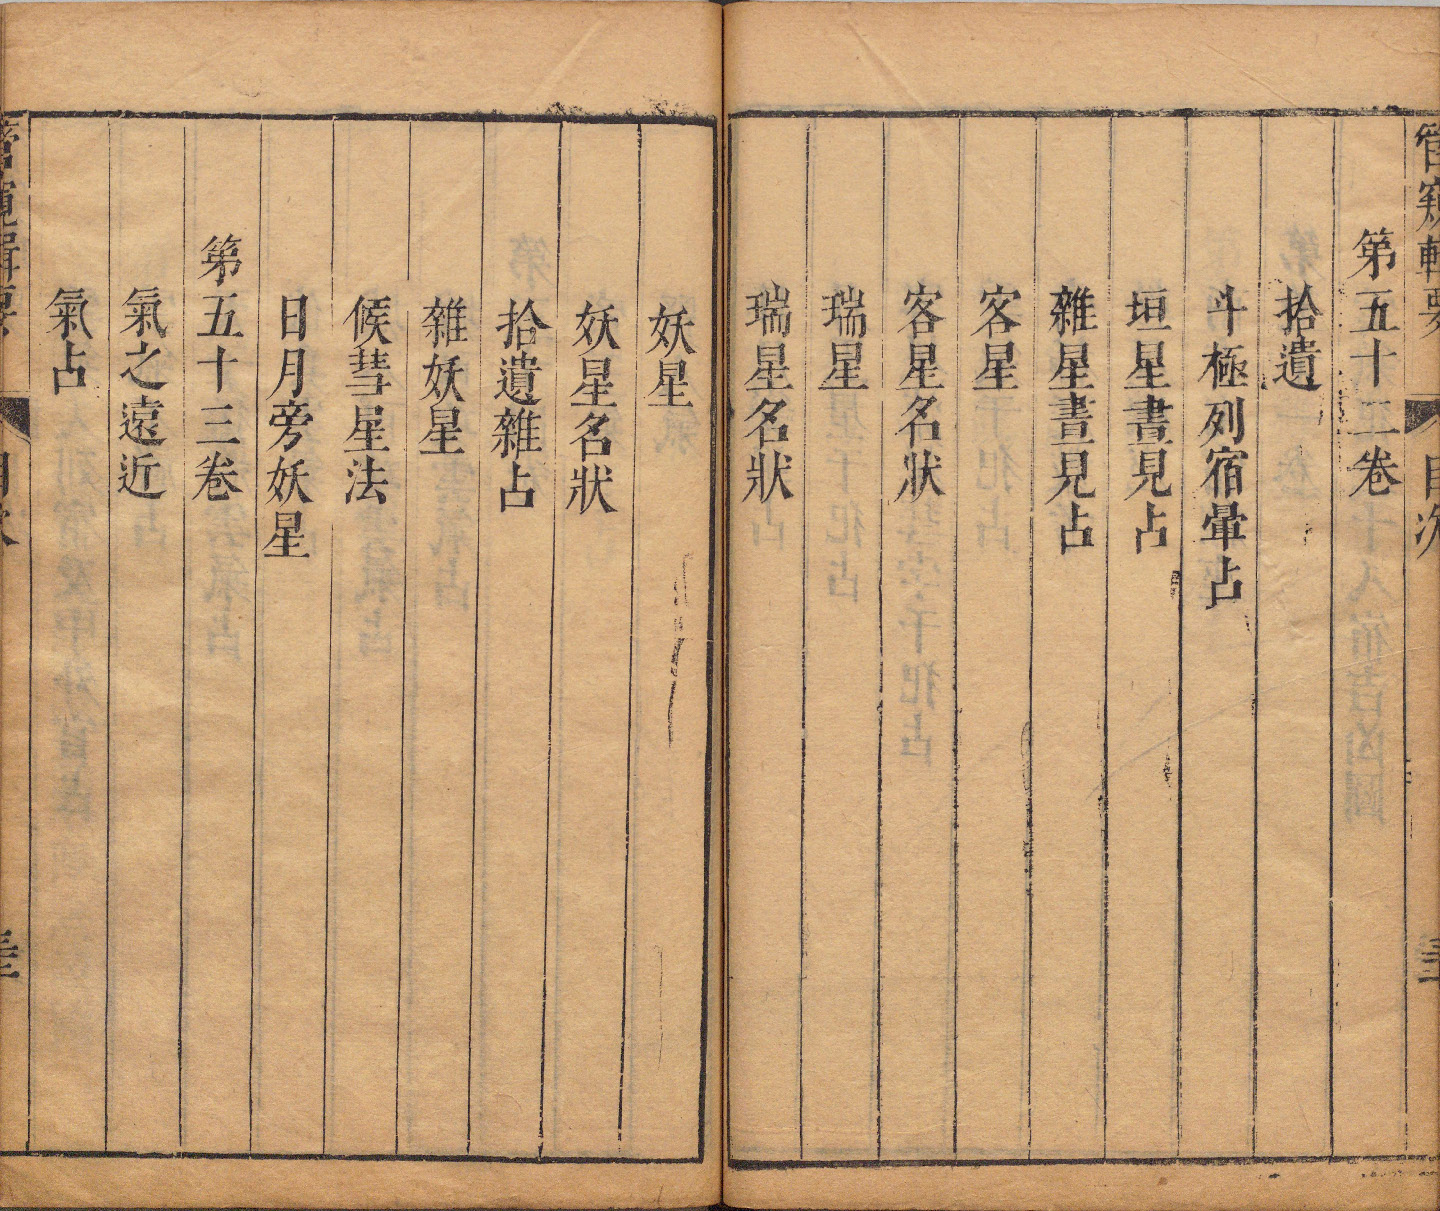 管窺輯要 目次
第五十二卷
拾遺
斗極列宿暈占
垣星晝見占
雜星晝見占
客星
客星名狀
瑞星
瑞星名狀
妖星
妖星名狀
拾遺雜占
雜妖星
候彗星法
日月旁妖星
第五十三卷
氣之遠近
氣占
管窺輯要 目次